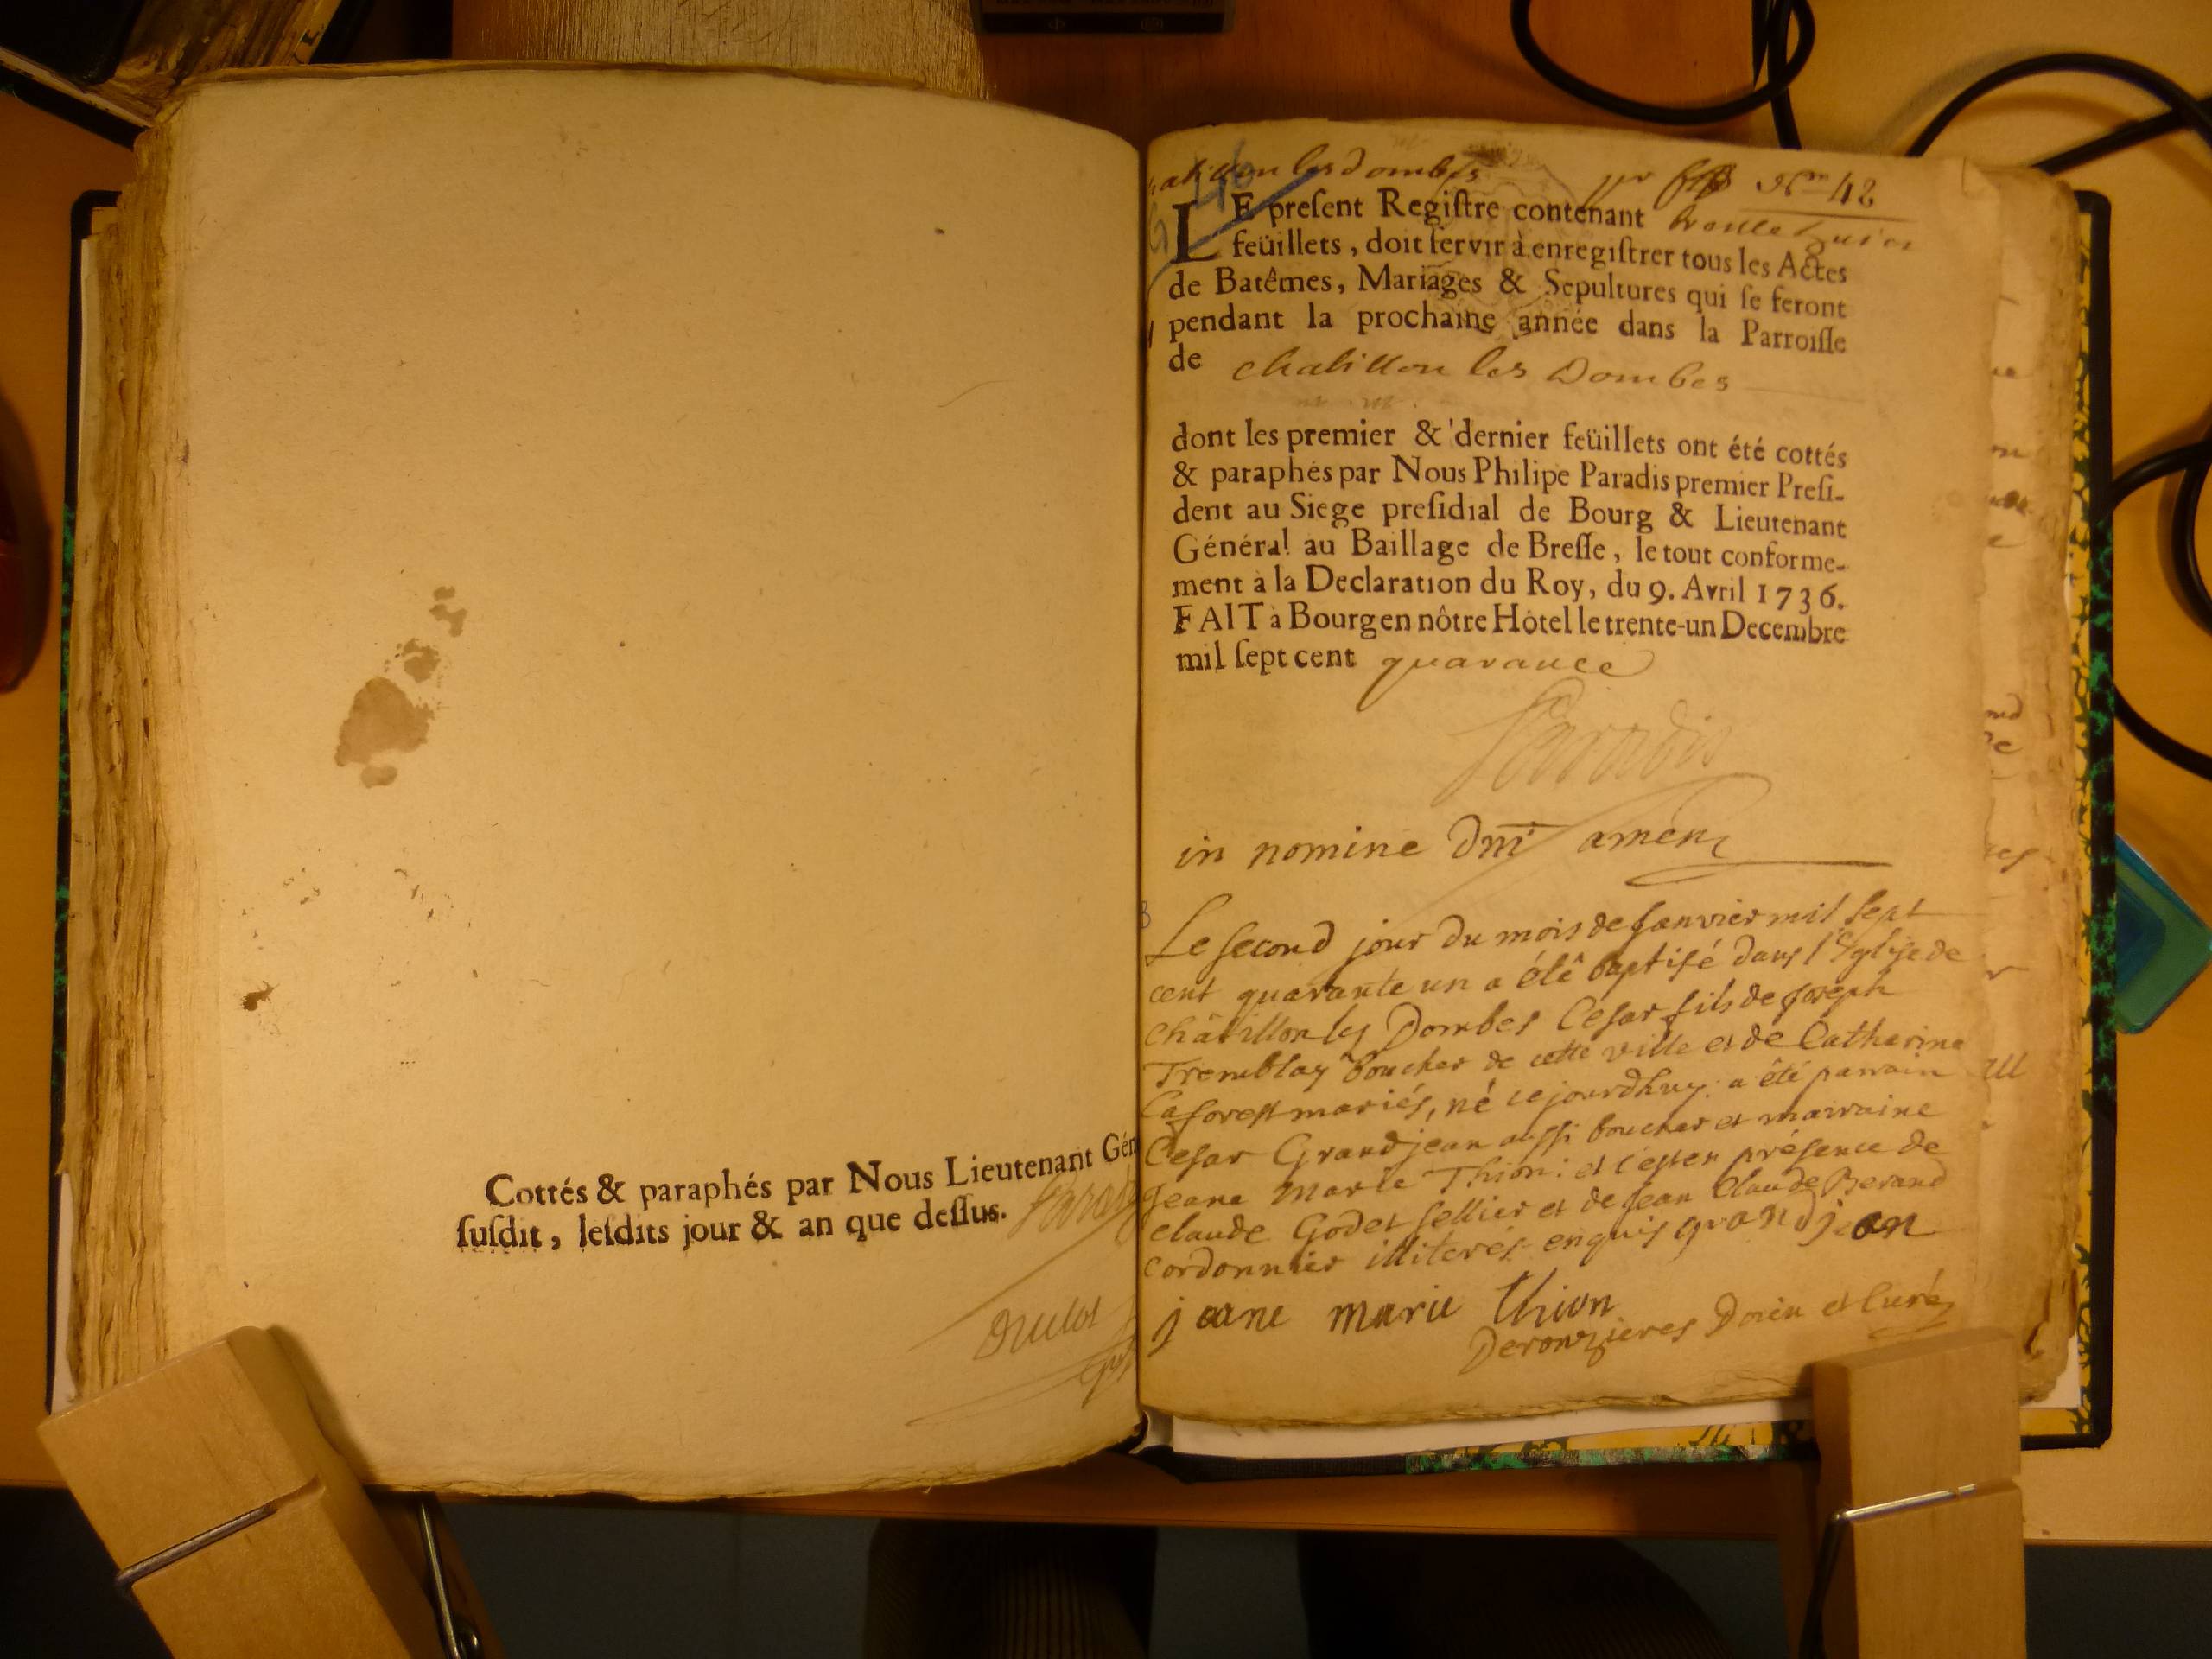 Cottés & paraphés par Nous Lieutenant Gén
ſuſdit, leſdits jour & an que deſſus.
chatillon les dombes
Nro 42
LE preſent Regiſtre contenant
feüillets, doit ſervir à enregiſtrer tous les Actes
de Batêmes, Mariages & Sepultures qui ſe feront
pendant la prochaine année dans la Parroiſſe
de chatillon les Dombes
dont les premier & dernier feüillets ont été cottés
& paraphés par Nous Philipe Paradis premier Preſi-
dent au Siege preſidial de Bourg & Lieutenant
Général au Baillage de Breſſe, le tout conforme-
ment à la Declaration du Roy, du 9. Avril 1736.
FAIT à Bourg en nôtre Hôtel le trente-un Decembre
mil ſept cent quarante
Paradis
in nomine Dni amen
Le ſecond jour du mois de Janvier mil ſept
cent quarante un a été baptiſé dans l'Egliſe de
Châtillon les Dombes Ceſar fils de Joſeph
Tremblay boucher de cette ville et de Catherine
Laforest mariés, né cejourdhuy: a été parrain
Ceſar Grandjean auſſi boucher et marraine
Jeane Marie Thion: et c'est en préſence de
claude Godet ſellier et de Jean Claude Berand
cordonnier illiterés enquis grandjean
jeane marie thion
Derouzieres Doien et Curé